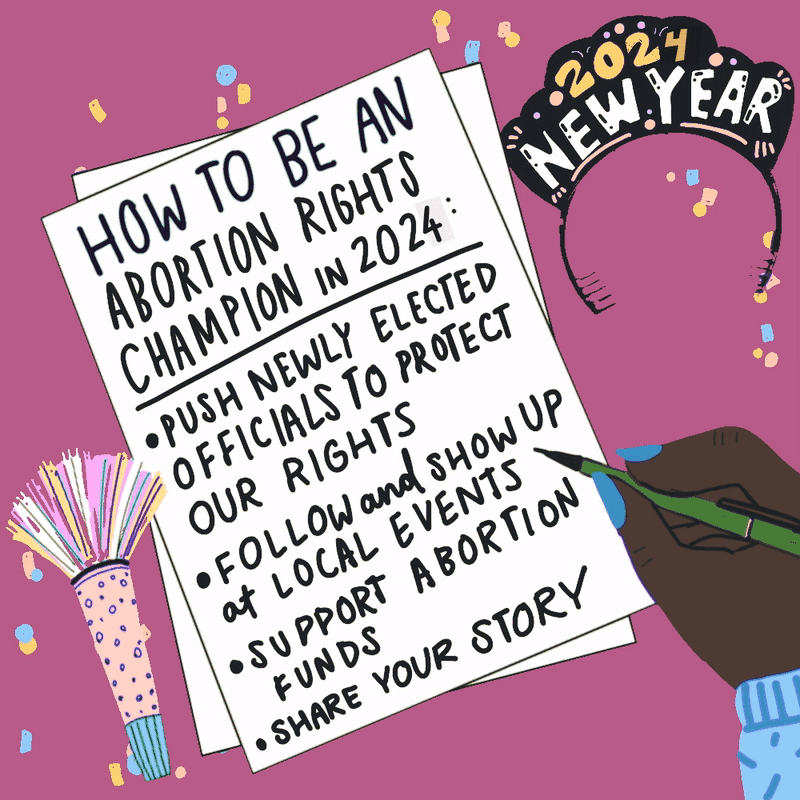 2024
NEW YEAR
HOW TO BE AN
ABORTION RIGHTS
CHAMPION IN 2024:
•PUSH NEWLY ELECTED
OFFICIALS TO PROTECT
OUR RIGHTS
•FOLLOW and SHOW UP
at LOCAL EVENTS
•SUPPORT ABORTION
FUNDS
•SHARE YOUR STORY